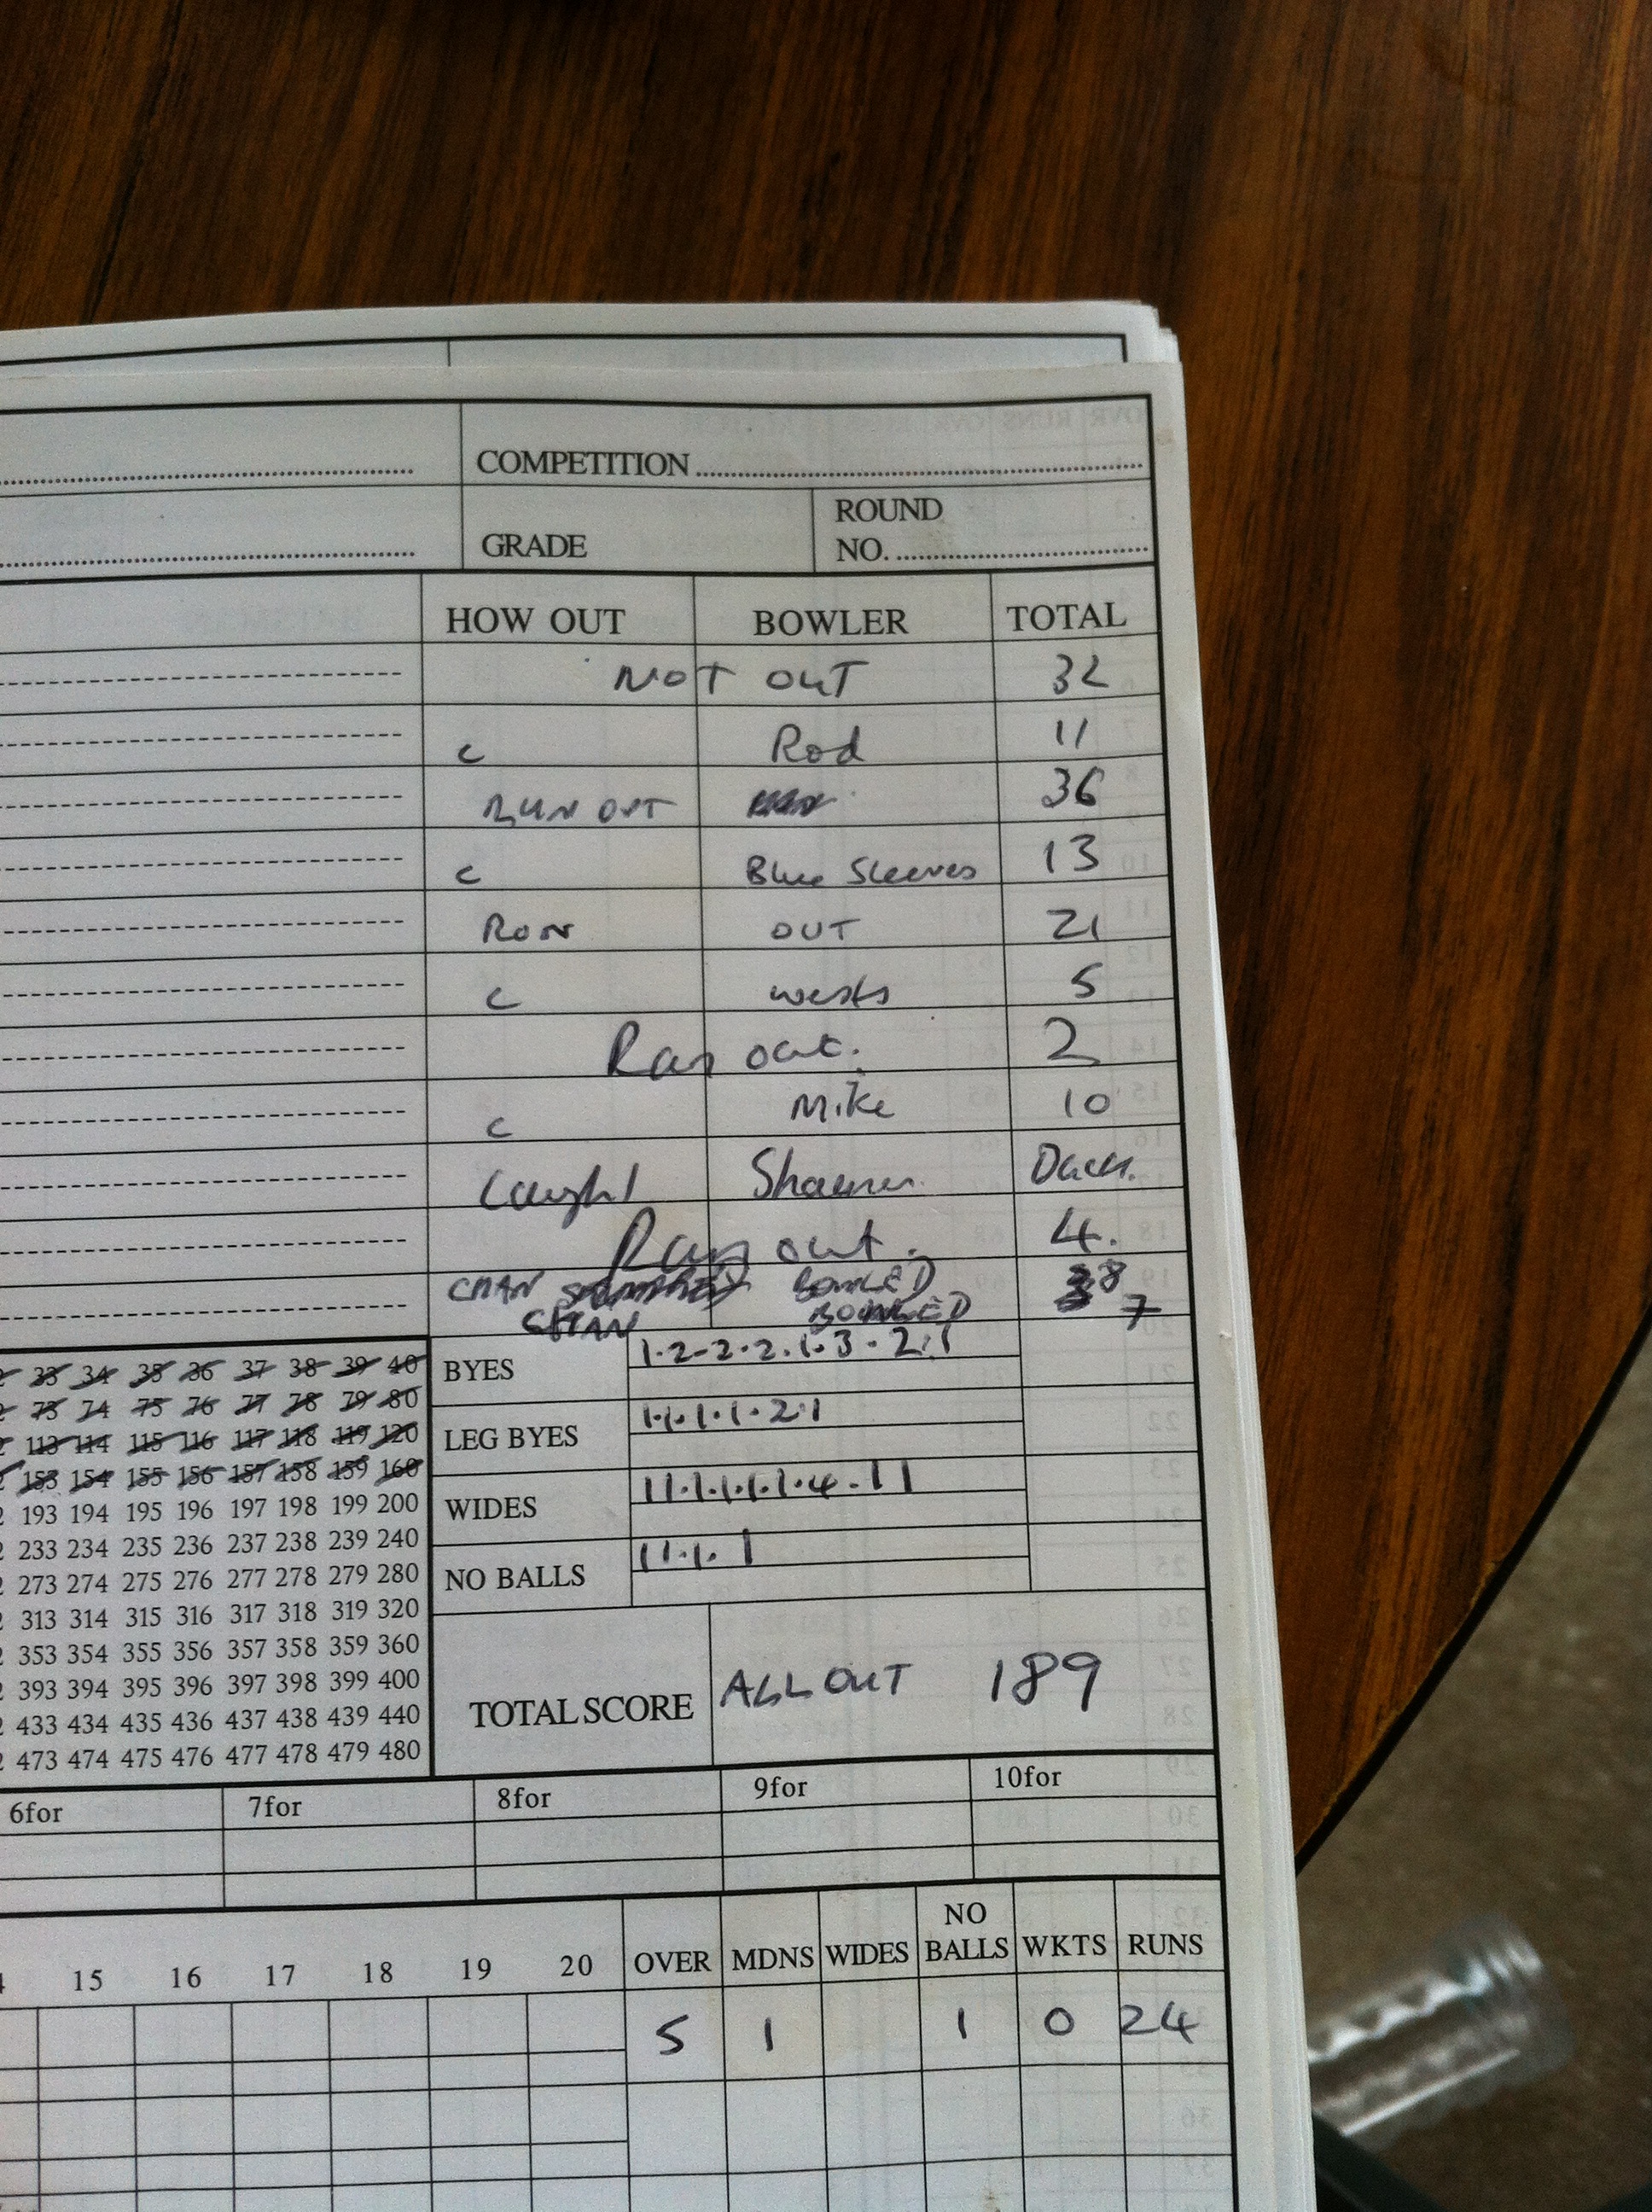 COMPETITION
GRADE
ROUND NO.
HOW OUT BOWLER TOTAL
NOT OUT 32
c Rod 11
RUN OUT 36
c Blue Sleeves 13
RUN OUT 21
c wests 5
Run out. 2
c Mike 10
Caught Duck.
Run out. 4.
BOWLED 8
BOWLED 7
33 34 35 36 37 38 39 40
73 74 75 76 77 78 79 80
113 114 115 116 117 118 119 120
153 154 155 156 157 158 159 160
193 194 195 196 197 198 199 200
233 234 235 236 237 238 239 240
273 274 275 276 277 278 279 280
313 314 315 316 317 318 319 320
353 354 355 356 357 358 359 360
393 394 395 396 397 398 399 400
433 434 435 436 437 438 439 440
473 474 475 476 477 478 479 480
BYES 1.2-2.2.1.3.2.1
LEG BYES 1.1.1.1.2.1
WIDES 11.1.1.1.1.4.11
NO BALLS 11.1.1
TOTAL SCORE ALL OUT 189
6for 7for 8for 9for 10for
15 16 17 18 19 20 OVER MDNS WIDES NO BALLS WKTS RUNS
5 1 1 0 24